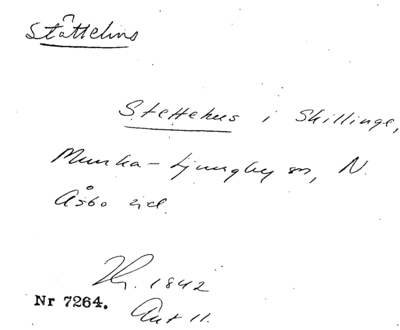 Ståttelius
Stettehus i Skillinge,
Munka-Ljungby sn, N.
Åsbo hd.
1842
Nr 7264. Ant 11.